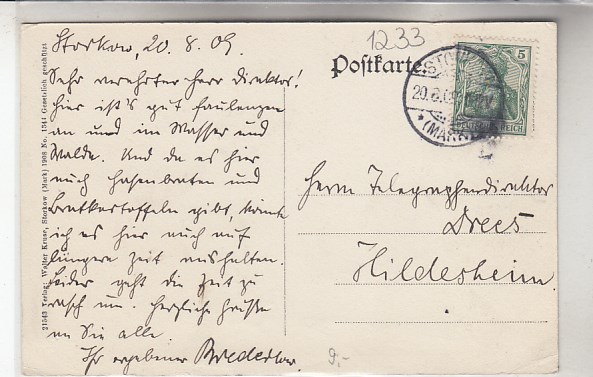 1233
Storkow, 20. 8. 09.
Postkarte
5
Sehr verehrter Herr Direktor!
Hier ist's gut faulenzen
an und im Wasser und
Walde. Und da es hier
auch Hasenbraten und
Bratkartoffeln gibt, könnte
ich es hier auch auf
längere Zeit aushalten.
Leider geht die Zeit zu
rasch um. Herzliche Grüße
an Sie alle
Ihr ergebener Brederlow.
STORKOW
20.8.09
(MARK)
REICH
Herrn Telegraphendirektor
Drees
Hildesheim.
9,-
21543 Verlag: Walter Kruse, Storkow (Mark) 1908 No. 1544 Gesetzlich geschützt